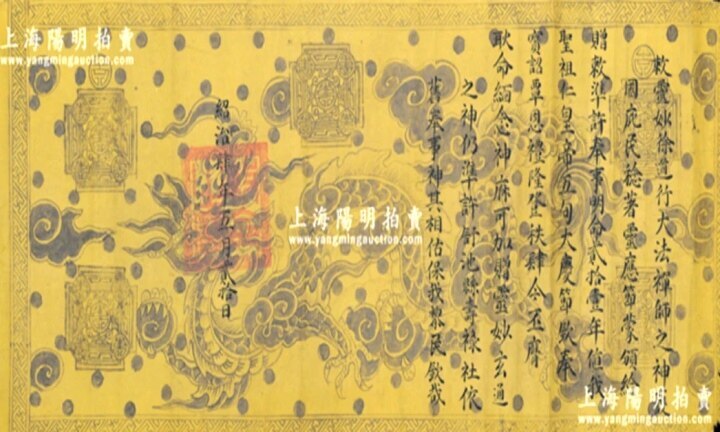 敕靈妙徐道行大法禪師之神護
國庇民稔著靈應節蒙頒給
贈敕準許奉事明命貳拾壹年值我
聖祖仁皇帝五旬大慶節欽奉
寶詔覃恩禮隆登秩肆今丕膺
耿命緬念神庥可加贈靈妙玄通
之神仍準許舒池壽祿社依
舊奉事神其相佑保我黎民欽哉
紹治肆年五月貳拾日
上海陽明拍賣
www.yangmingauction.com
上海陽明拍賣
www.yangmingauction.com
上海陽明拍賣
www.yangmingauction.com